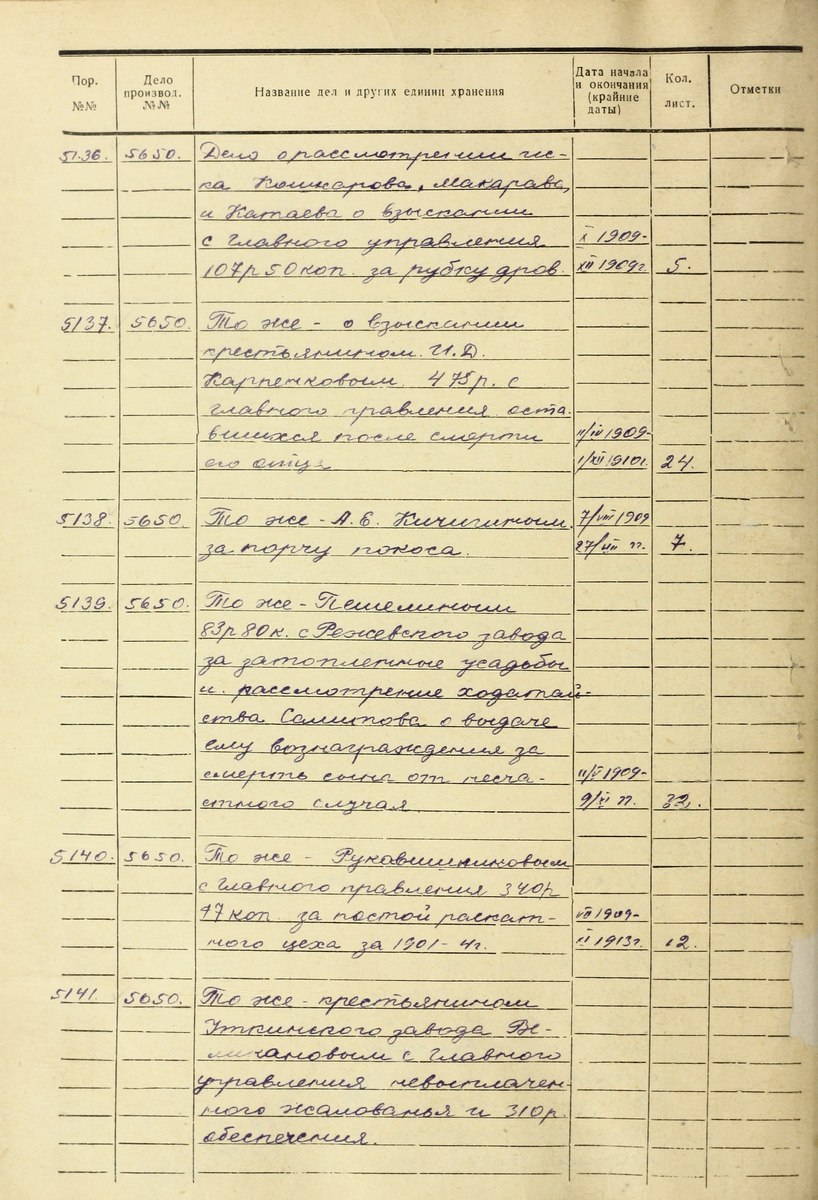 Пор. №№ Дело производ. №№ Название дел и других единиц хранения Дата начала и окончания (крайние даты) Кол. лист. Отметки
5136. 5650. Дело о рассмотрении ис-
ка Кошкарова, Макарава,
и Катаева о взыскании
с Главного управления X 1909-
107р 50 коп. за рубку дров. XII 1909г 5.
5137. 5650. То же - о взыскании
крестьянином И.Д.
Карпенковым 475р. с
главного правления оста-
вшихся после смерти II/IV 1909-
его отца 1/XII 1910г. 24.
5138. 5650. То же - А.Е. Кичигиным 7/VIII 1909
за порчу покоса. 27/VIII гг. 7.
5139. 5650. То же - Пешелиным
83р 80к. с Режевского завода
за затопленные усадьбы
и рассмотрение ходатай-
ства о выдаче
ему вознаграждения за
смерть сына от несча- 11/V 1909-
стного случая 9/XI гг. 32.
5140. 5650. То же - Рукавишниковым
с Главного правления 340р
77 коп. за постой раскат- VII 1909-
ного цеха за 1901-4г. 1913г. 12.
5141. 5650. То же - крестьянином
Уткинского завода
с Главного
управления невыплачен-
ного жалованья и 310р.
обеспечения.